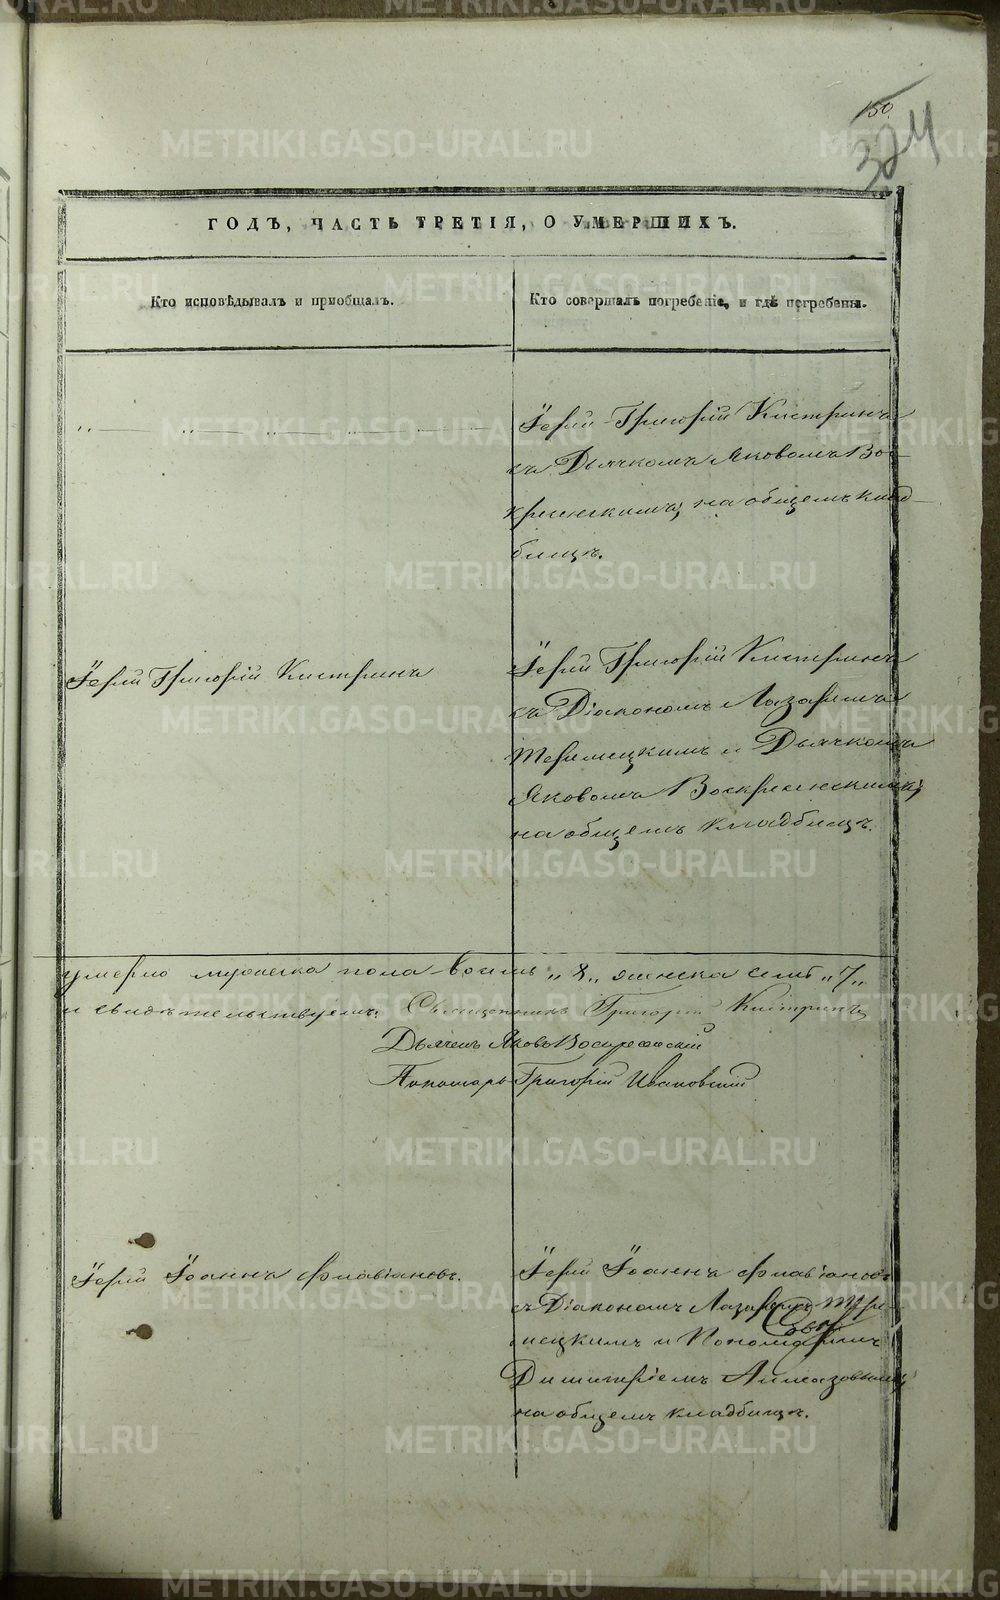 150.
324
ГОДЪ, ЧАСТЬ ТРЕТІЯ, О УМЕРШИХЪ.
Кто исповѣдывалъ и пріобщалъ.
Кто совершалъ погребеніе, и гдѣ погребены.
Іерей Григорій Кистринъ
съ Дьячкомъ Яковомъ Вос-
кресенскимъ, на общемъ клад-
бищѣ.
Іерей Григорій Кистринъ
Іерей Григорій Кистринъ
съ Діакономъ Лазаремъ
и Дьячкомъ
Яковомъ Воскресенскимъ,
на общемъ кладбищѣ.
умерло мужеска пола восемь „8„ женска семь „7„
и свидѣтельствуемъ. Священникъ Григорій Кистринъ
Дьячекъ Яковъ Воскресенскій
Пономарь Григорій Ивановскій
Іерей Іоаннъ Флавіановъ.
Іерей Іоаннъ Флавіановъ
съ Діакономъ Лазаремъ
и Пономаремъ
Димитріемъ Алмазовымъ,
на общемъ кладбищѣ.
METRIKI.GASO-URAL.RU